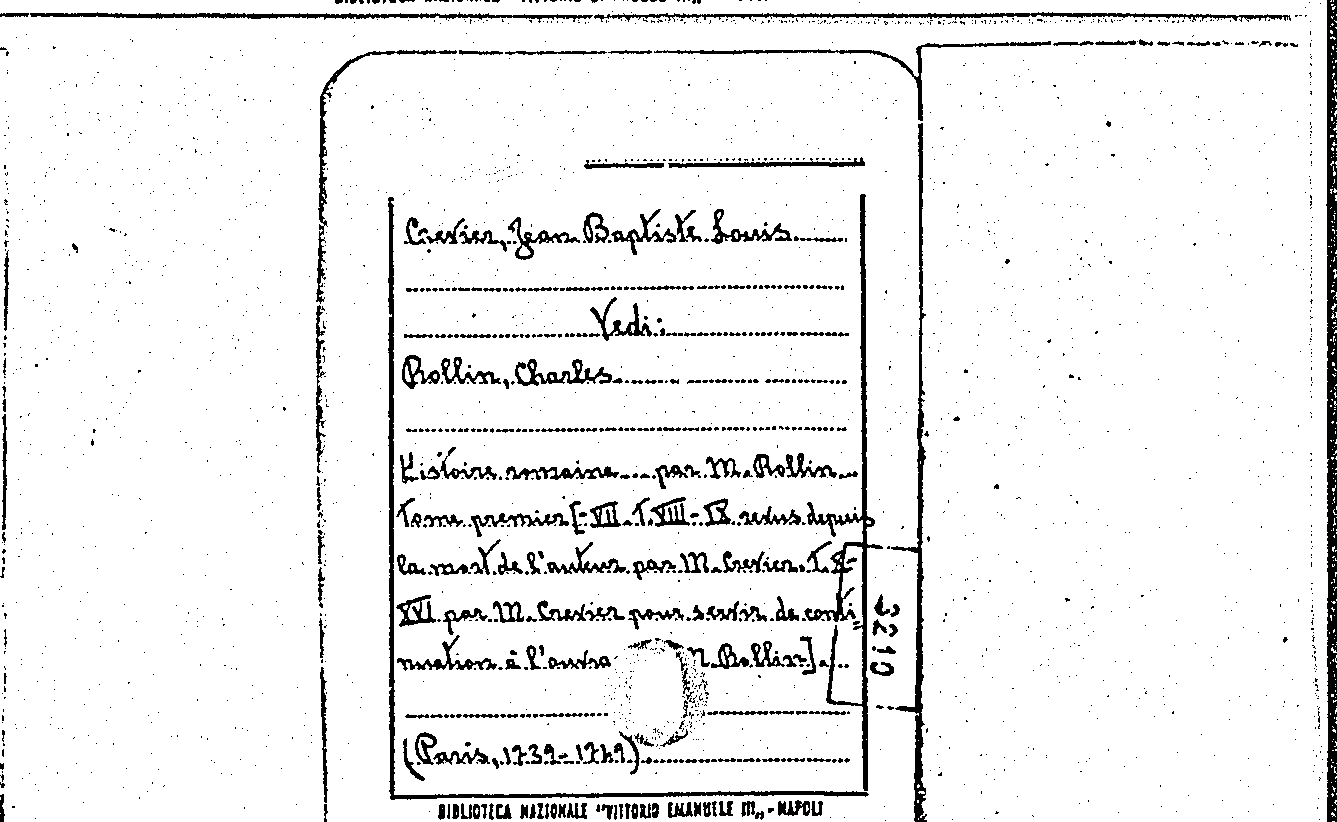 Crevier, Jean Baptiste Louis
Vedi:
Rollin, Charles
Histoire romaine... par M. Rollin...
Tome premier [-VII. T. VIII-IX revus depuis
la mort de l'auteur par M. Crevier. T. X-
XVI par M. Crevier pour servir de conti=
nuation à l'ouvra M. Rollin]...
(Paris, 1739-1749)
3210
BIBLIOTECA NAZIONALE "VITTORIO EMANUELE III„ - NAPOLI